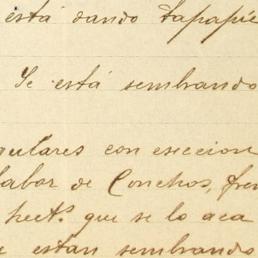 está dando tapapié
Se está sembrando
gulares con esección
labor de Conchos, fren
hect.s que se lo aca
e estan sembrando